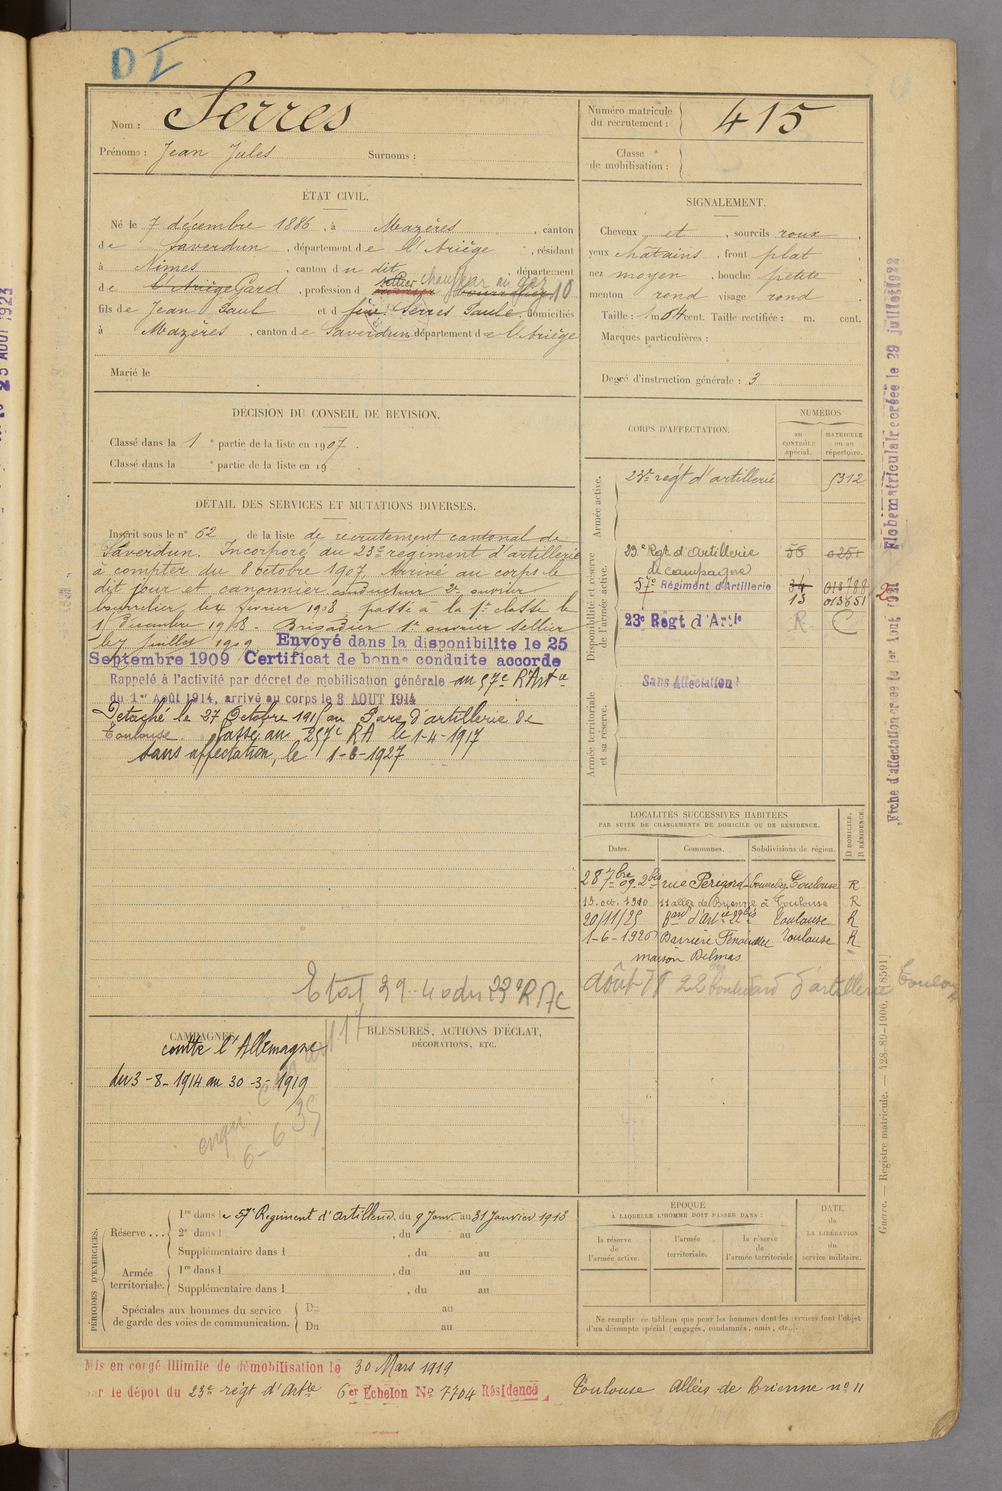 DI
Nom : Serres
Prénoms : Jean Jules Surnoms :
Numéro matricule du recrutement : 415
Classe de mobilisation :
ÉTAT CIVIL.
Né le 7 décembre 1886, à Mazères, canton
de Saverdun, département de l'Ariège, résidant
à Nimes, canton du dit, département
de l'Ariège Gard, profession de sellier chauffeur au gaz bourrelier 10
fils de Jean Paul et de feue Serres Paule, domiciliés
à Mazères, canton de Saverdun département de l'Ariège
Marié le
SIGNALEMENT.
Cheveux et, sourcils roux,
yeux châtains, front plat,
nez moyen, bouche petite
menton rond visage rond
Taille : 1m 64 cent. Taille rectifiée : m. cent.
Marques particulières :
Degré d'instruction générale : 3
DÉCISION DU CONSEIL DE REVISION.
Classé dans la 1e partie de la liste en 1907.
Classé dans la e partie de la liste en 19
DÉTAIL DES SERVICES ET MUTATIONS DIVERSES.
Inscrit sous le n° 62 de la liste de recrutement cantonal de
Saverdun. Incorporé au 23e régiment d'artillerie
à compter du 8 octobre 1907. Arrivé au corps le
dit jour et canonnier conducteur 2e ouvrier
bourrelier le 4 février 1908 passé à la 1e classe le
1 décembre 1908. Brigadier 1e ouvrier sellier
le 7 juillet 1909 Envoyé dans la disponibilite le 25
Septembre 1909 Certificat de bonne conduite accorde
Rappelé à l'activité par décret de mobilisation générale au 57e R Art ie
du 1er Août 1914, arrivé au corps le 3 AOUT 1914
Détaché le 27 Octobre 1915 au Parc d'artillerie de
Toulouse. Passé au 257e RA le 1-4-1917
sans affectation, le 1-6-1927
Etat 39-40 du 23e RAC
CORPS D'AFFECTATION.
NUMÉROS
au CONTRÔLE spécial.
MATRICULE ou au répertoire.
Armée active.
23e régt d'artillerie 5312
Disponibilité et réserve de l'armée active.
23e Rgt d'Artillerie 56 0251
de campagne
57e Régiment d'Artillerie 34 018788
13 013651
23e Régt d'Artie R C
Armée territoriale et sa réserve.
Sans Affectation
LOCALITÉS SUCCESSIVES HABITÉES
PAR SUITE DE CHANGEMENTS DE DOMICILE OU DE RÉSIDENCE.
Dates. Communes. Subdivisions de région. D DOMICILE. R RÉSIDENCE.
28 7bre 09 2bis rue Périgord Toulouse R
13. oct. 1910 11 allée de Brienne à Toulouse R
20/11/25 Bard d'Artie 22bis Toulouse R
1-6-1926 Barrière Toulouse R
maison Delmas
Août 78 22 boulevard d'artillerie Toulouse
CAMPAGNES.
contre l'Allemagne
du 3-8-1914 au 30-3-1919
6-6 35
BLESSURES, ACTIONS D'ÉCLAT,
DÉCORATIONS, ETC.
PÉRIODES D'EXERCICES.
Réserve... 1re dans le 57e Régiment d'Artillerie, du 9 Janv. au 31 Janvier 1913
2e dans l , du au
Supplémentaire dans l , du au
Armée territoriale. 1re dans l , du au
Supplémentaire dans l , du au
Spéciales aux hommes du service de garde des voies de communication. Du au
Du au
ÉPOQUE
À LAQUELLE L'HOMME DOIT PASSER DANS :
la réserve de l'armée active.
l'armée territoriale.
la réserve de l'armée territoriale
DATE de LA LIBÉRATION du service militaire.
Ne remplir ce tableau que pour les hommes dont les services font l'objet
d'un décompte spécial (engagés, condamnés, omis, etc.).
Mis en congé illimité de démobilisation le 30 Mars 1919
par le dépôt du 23e régt d'Artie 6er Echelon No 7704 Résidence Toulouse Allées de Brienne no 11
Fiche matriculaire créée le 29 juillet 1922
Fiche d'affectation créée le 1er Août 1921
Guerre. — Registre matricule. — 428-89-1906. (8591)
25 AOUT 1923